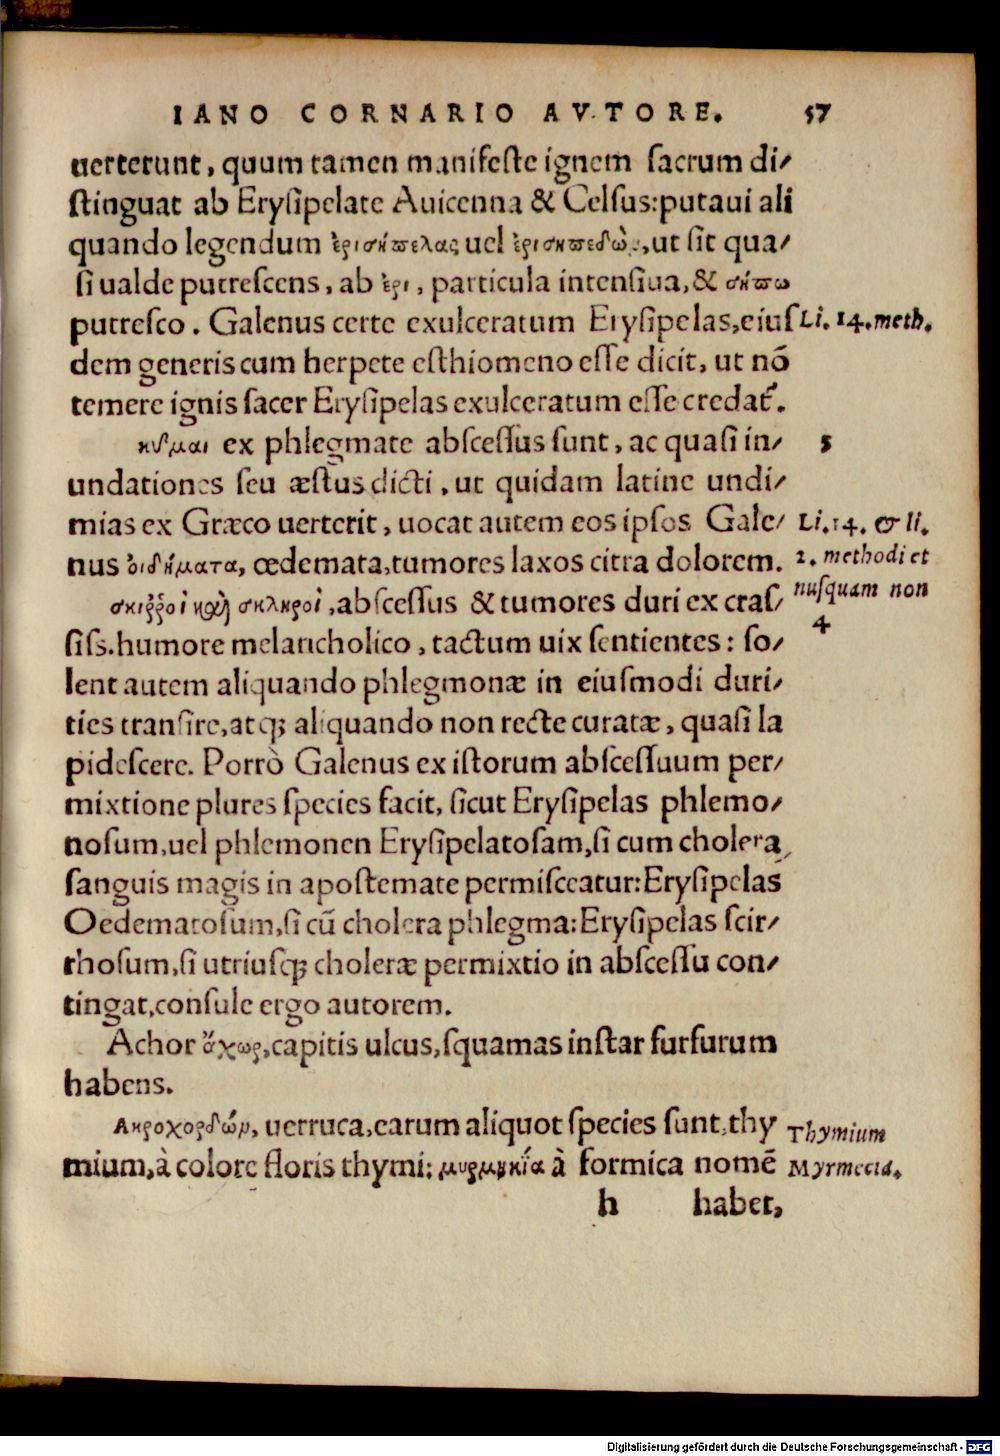 IANO CORNARIO AVTORE. 57
uerterunt, quum tamen manifeste ignem sacrum di/
stinguat ab Erysipelate Auicenna & Celsus: putaui ali
quando legendum ἐρισήπελας uel ἐρισηπεδὼν, ut sit qua/
si ualde putrescens, ab ἐρι, particula intensiua, & σήπω
putresco. Galenus certe exulceratum Erysipelas, eius Li. 14. meth.
dem generis cum herpete esthiomeno esse dicit, ut nō
temere ignis sacer Erysipelas exulceratum esse credat᷑.
κύμαι ex phlegmate abscessus sunt, ac quasi in/ 5
undationes seu æstus dicti, ut quidam latine undi/
mias ex Græco uerterit, uocat autem eos ipsos Gale/ Li. 14. & li.
nus ὀιδήματα, œdemata, tumores laxos citra dolorem. 2. methodi et
σκιῤῥοὶ καὶ σκληροὶ, abscessus & tumores duri ex cras/ nusquam non
siss. humore melancholico, tactum uix sentientes: so/ 4
lent autem aliquando phlegmonæ in eiusmodi duri/
ties transire, atq; aliquando non recte curatæ, quasi la
pidescere. Porrò Galenus ex istorum abscessuum per/
mixtione plures species facit, sicut Erysipelas phlemo/
nosum, uel phlemonen Erysipelatosam, si cum cholera
sanguis magis in apostemate permisceatur: Erysipelas
Oedematosum, si cū cholera phlegma: Erysipelas scir/
rhosum, si utriusq; choleræ permixtio in abscessu con/
tingat, consule ergo autorem.
Achor ἄχωρ, capitis ulcus, squamas instar furfurum
habens.
Ακροχορδών, uerruca, earum aliquot species sunt, thy Thymium
mium, à colore floris thymi: μυρμηκία à formica nomē Myrmecia.
h habet,
Digitalisierung gefördert durch die Deutsche Forschungsgemeinschaft - DFG